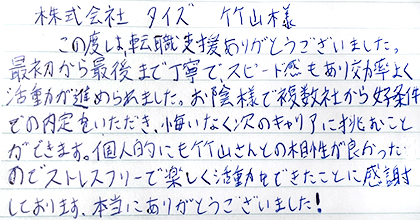 株式会社 タイズ 竹山様
この度は、転職支援ありがとうございました。
最初から最後まで丁寧で、スピード感もあり効率よく
活動が進められました。お陰様で複数社から好条件
での内定をいただき、悔いなく次のキャリアに挑むこと
ができます。個人的にも竹山さんとの相性が良かった
のでストレスフリーで楽しく活動をできたことに感謝
しております、本当にありがとうございました!